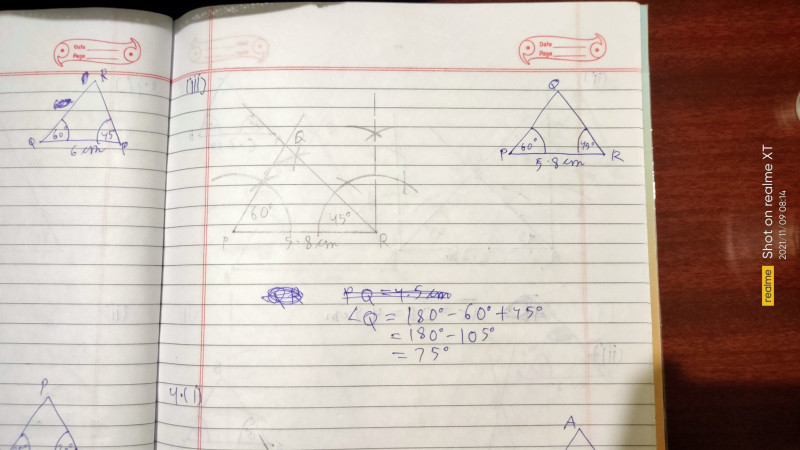 Date
Page
R
60°
45
Q
6 cm
P
P
Date
Page
(iii)
Q
60°
45°
P
5.8 cm
R
Q
60°
45°
P
5.8 cm
R
PQ = 4.5 cm
∠Q = 180° - 60° + 45°
= 180° - 105°
= 75°
4.(i)
A
realme
Shot on realme XT
2021/11/09 08:14